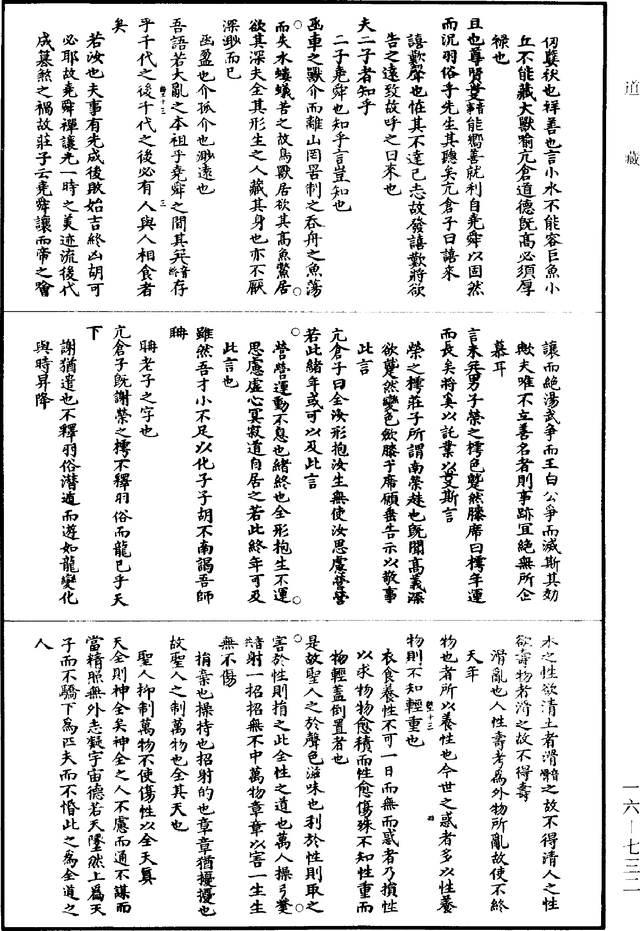 道藏
仞蘖狄也祥善也言小水不能容巨魚小
丘不能藏大獸喻亢倉道德既高必須厚
祿也
且也尊賢能嚮善就利自堯舜以固然
而況羽俗子先生其聽矣亢倉子曰譆來
譆歎聲也恠其不達已志故發譆歎將欲
告之遠致故呼之曰來也
夫二子者知乎
二子堯舜也知乎言豈知也
函車之獸介而離山罔罟制之吞舟之魚蕩
而失水螻蟻苦之故鳥獸居欲其高魚鱉居
欲其深夫全其形生之人藏其身也亦不厭
深渺而已
函盈也介孤介也渺遠也
吾語若大亂之本祖乎堯舜之間其終存
乎千代之後千代之後必有人與人相食者
矣
若汝也夫事有先成後敗始吉終凶胡可
必耶故堯舜禪讓光一時之美迹流後代
成篡煞之禍故莊子云堯舜讓而帝之噲
讓而絕湯武爭而王白公爭而滅斯其効
歟夫唯不立善名者則事跡冝絕無所企
慕耳
言未死男子榮之樗色蹵然膝席曰樗年運
而長矣將奚以託業以斯言
榮之樗莊子所謂南榮趎也既聞高義深
欲蹵然變色斂膝于席願垂告示以敬事
此言
亢倉子曰全汝形抱汝生無使汝思慮營營
若此緒年或可以及此言
營營運動不息也緒終也全形抱生不運
思慮虛心冥寂道自居之若此終年可及
此言也
雖然吾才小不足以化子子胡不南謁吾師
聃
聃老子之字也
亢倉子既謝榮之樗不釋羽俗而龍已乎天
下
謝猶遣也不釋羽俗潜遁而遊如龍變化
與時昇降
水之性欲清土者滑之故不得清人之性
欲壽物者滑之故不得壽
滑亂也人性壽考為外物所亂故使不終
天年
物也者所以養性也今世之惑者多以性養
物則不知輕重也
衣食養性不可一日而無而惑者乃損性
以求物物愈積而性愈傷殊不知性重而
物輕蓋倒置者也
是故聖人之於聲色滋味也利於性則取之
害於性則捐之此全性之道也萬人操弓
共射一招招無不中萬物章章以害一生生
無不傷
捐棄也操持也招射的也章章猶擾擾也
故聖人之制萬物也全其天也
聖人抑制萬物不使傷性以全天真
天全則神全矣神全之人不慮而通不謀而
當精照無外志凝宇宙德若天墬然上為天
子而不驕下為匹夫而不惛此之為全道之
人
一六—七三二